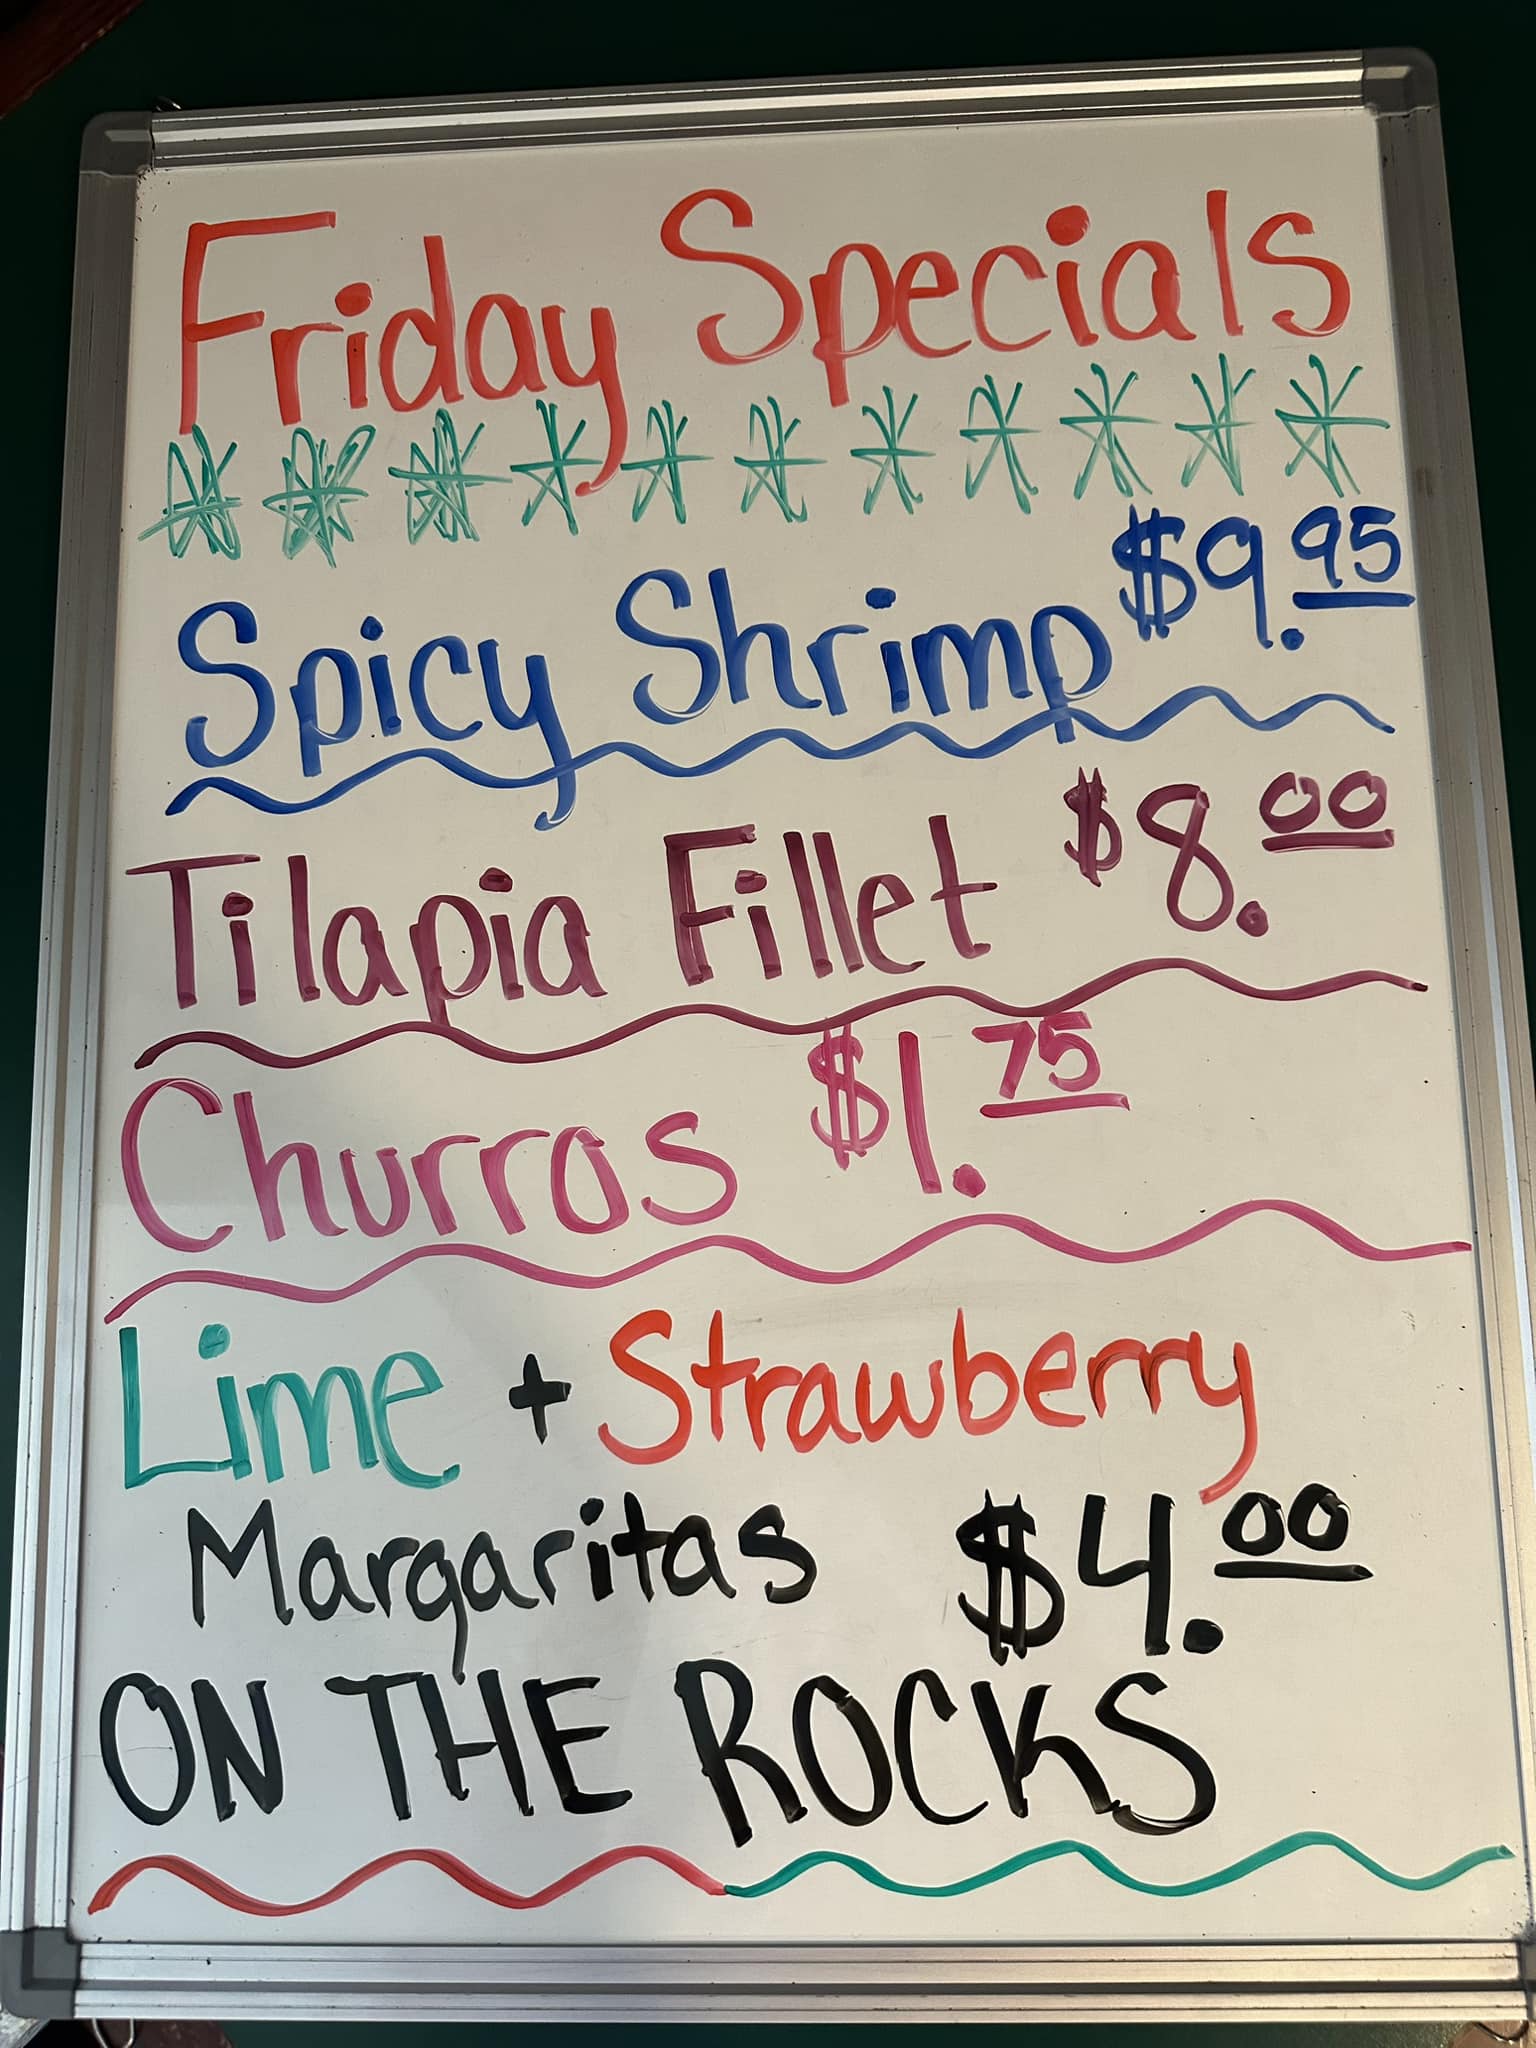 Friday Specials
Spicy Shrimp $9.95
Tilapia Fillet $8.00
Churros $1.75
Lime + Strawberry
Margaritas $4.00
ON THE ROCKS